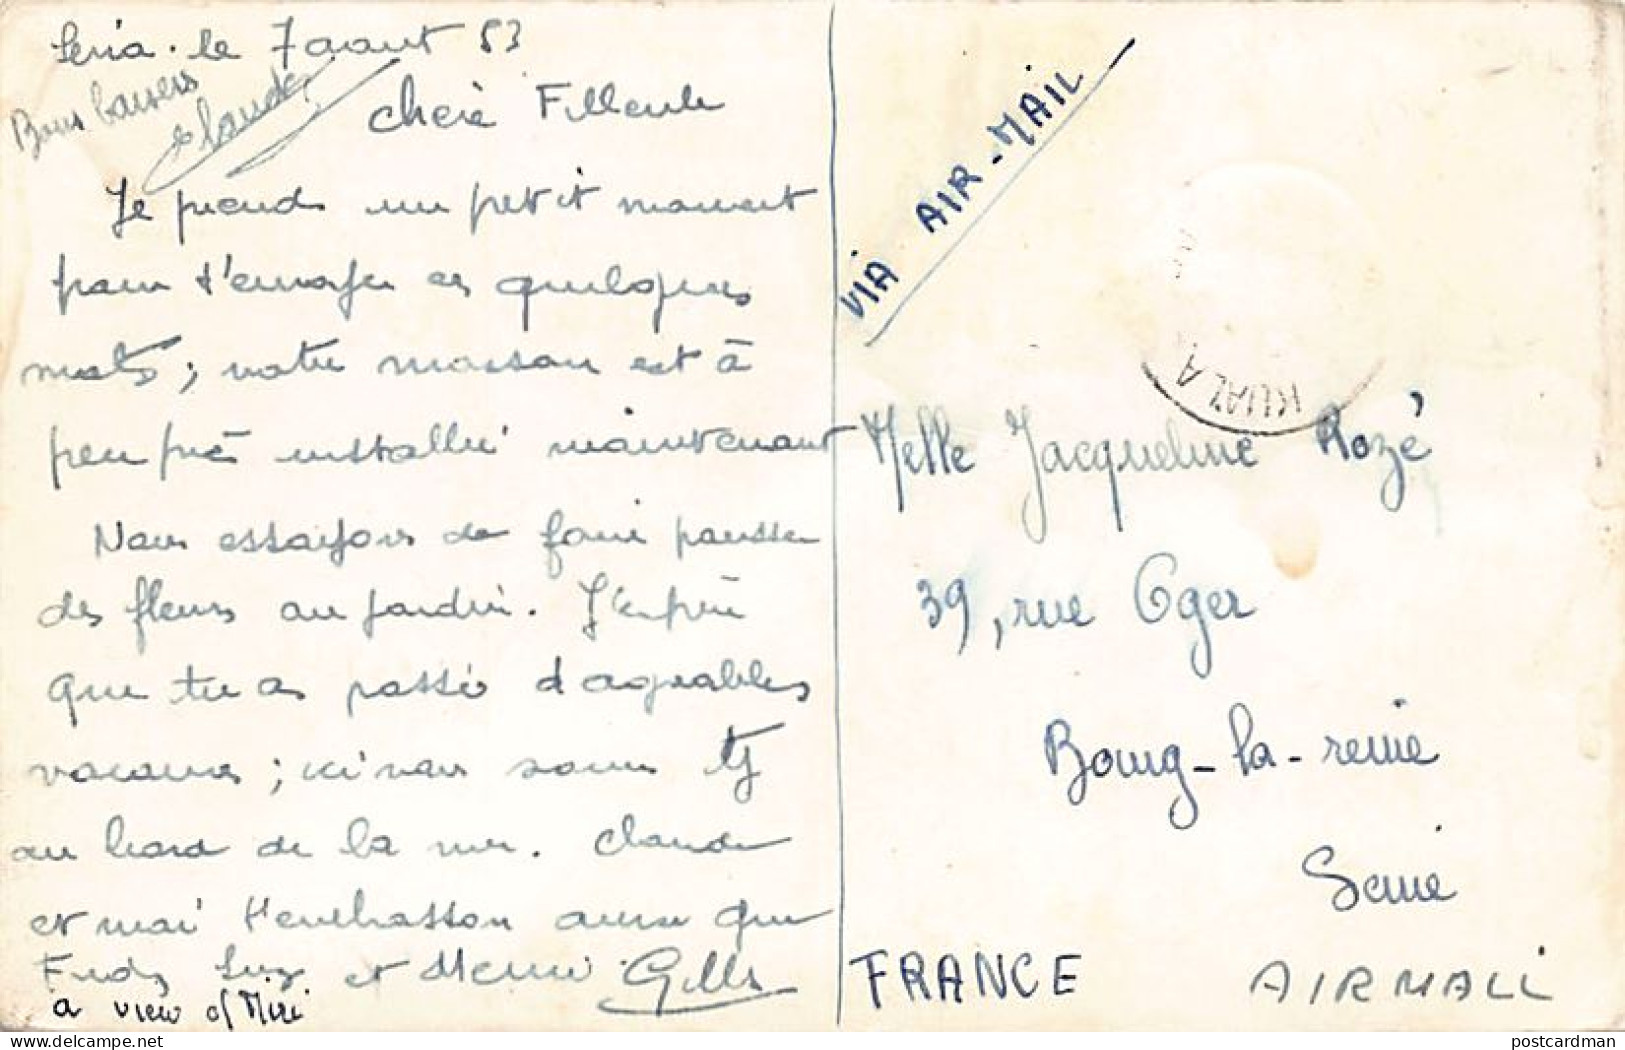 Seria . le 7 aout 53
Bons baisers
Claude
Chère Filleule
Je prends un petit moment
pour t'envoyer ces quelques
mots ; notre maison est à
peu près installée maintenant
Nous essayons de faire pousser
des fleurs au jardin. J'espère
que tu as passé d'agréables
vacances ; ici nous sommes tjs
au bord de la mer. Claude
et moi t'embrassons ainsi que
et Gilles
a view of Miri
VIA AIR-MAIL
KUALA
Melle Jacqueline Rozé
39, rue Oger
Bourg-la-reine
Seine
FRANCE
AIRMAIL
postcardman